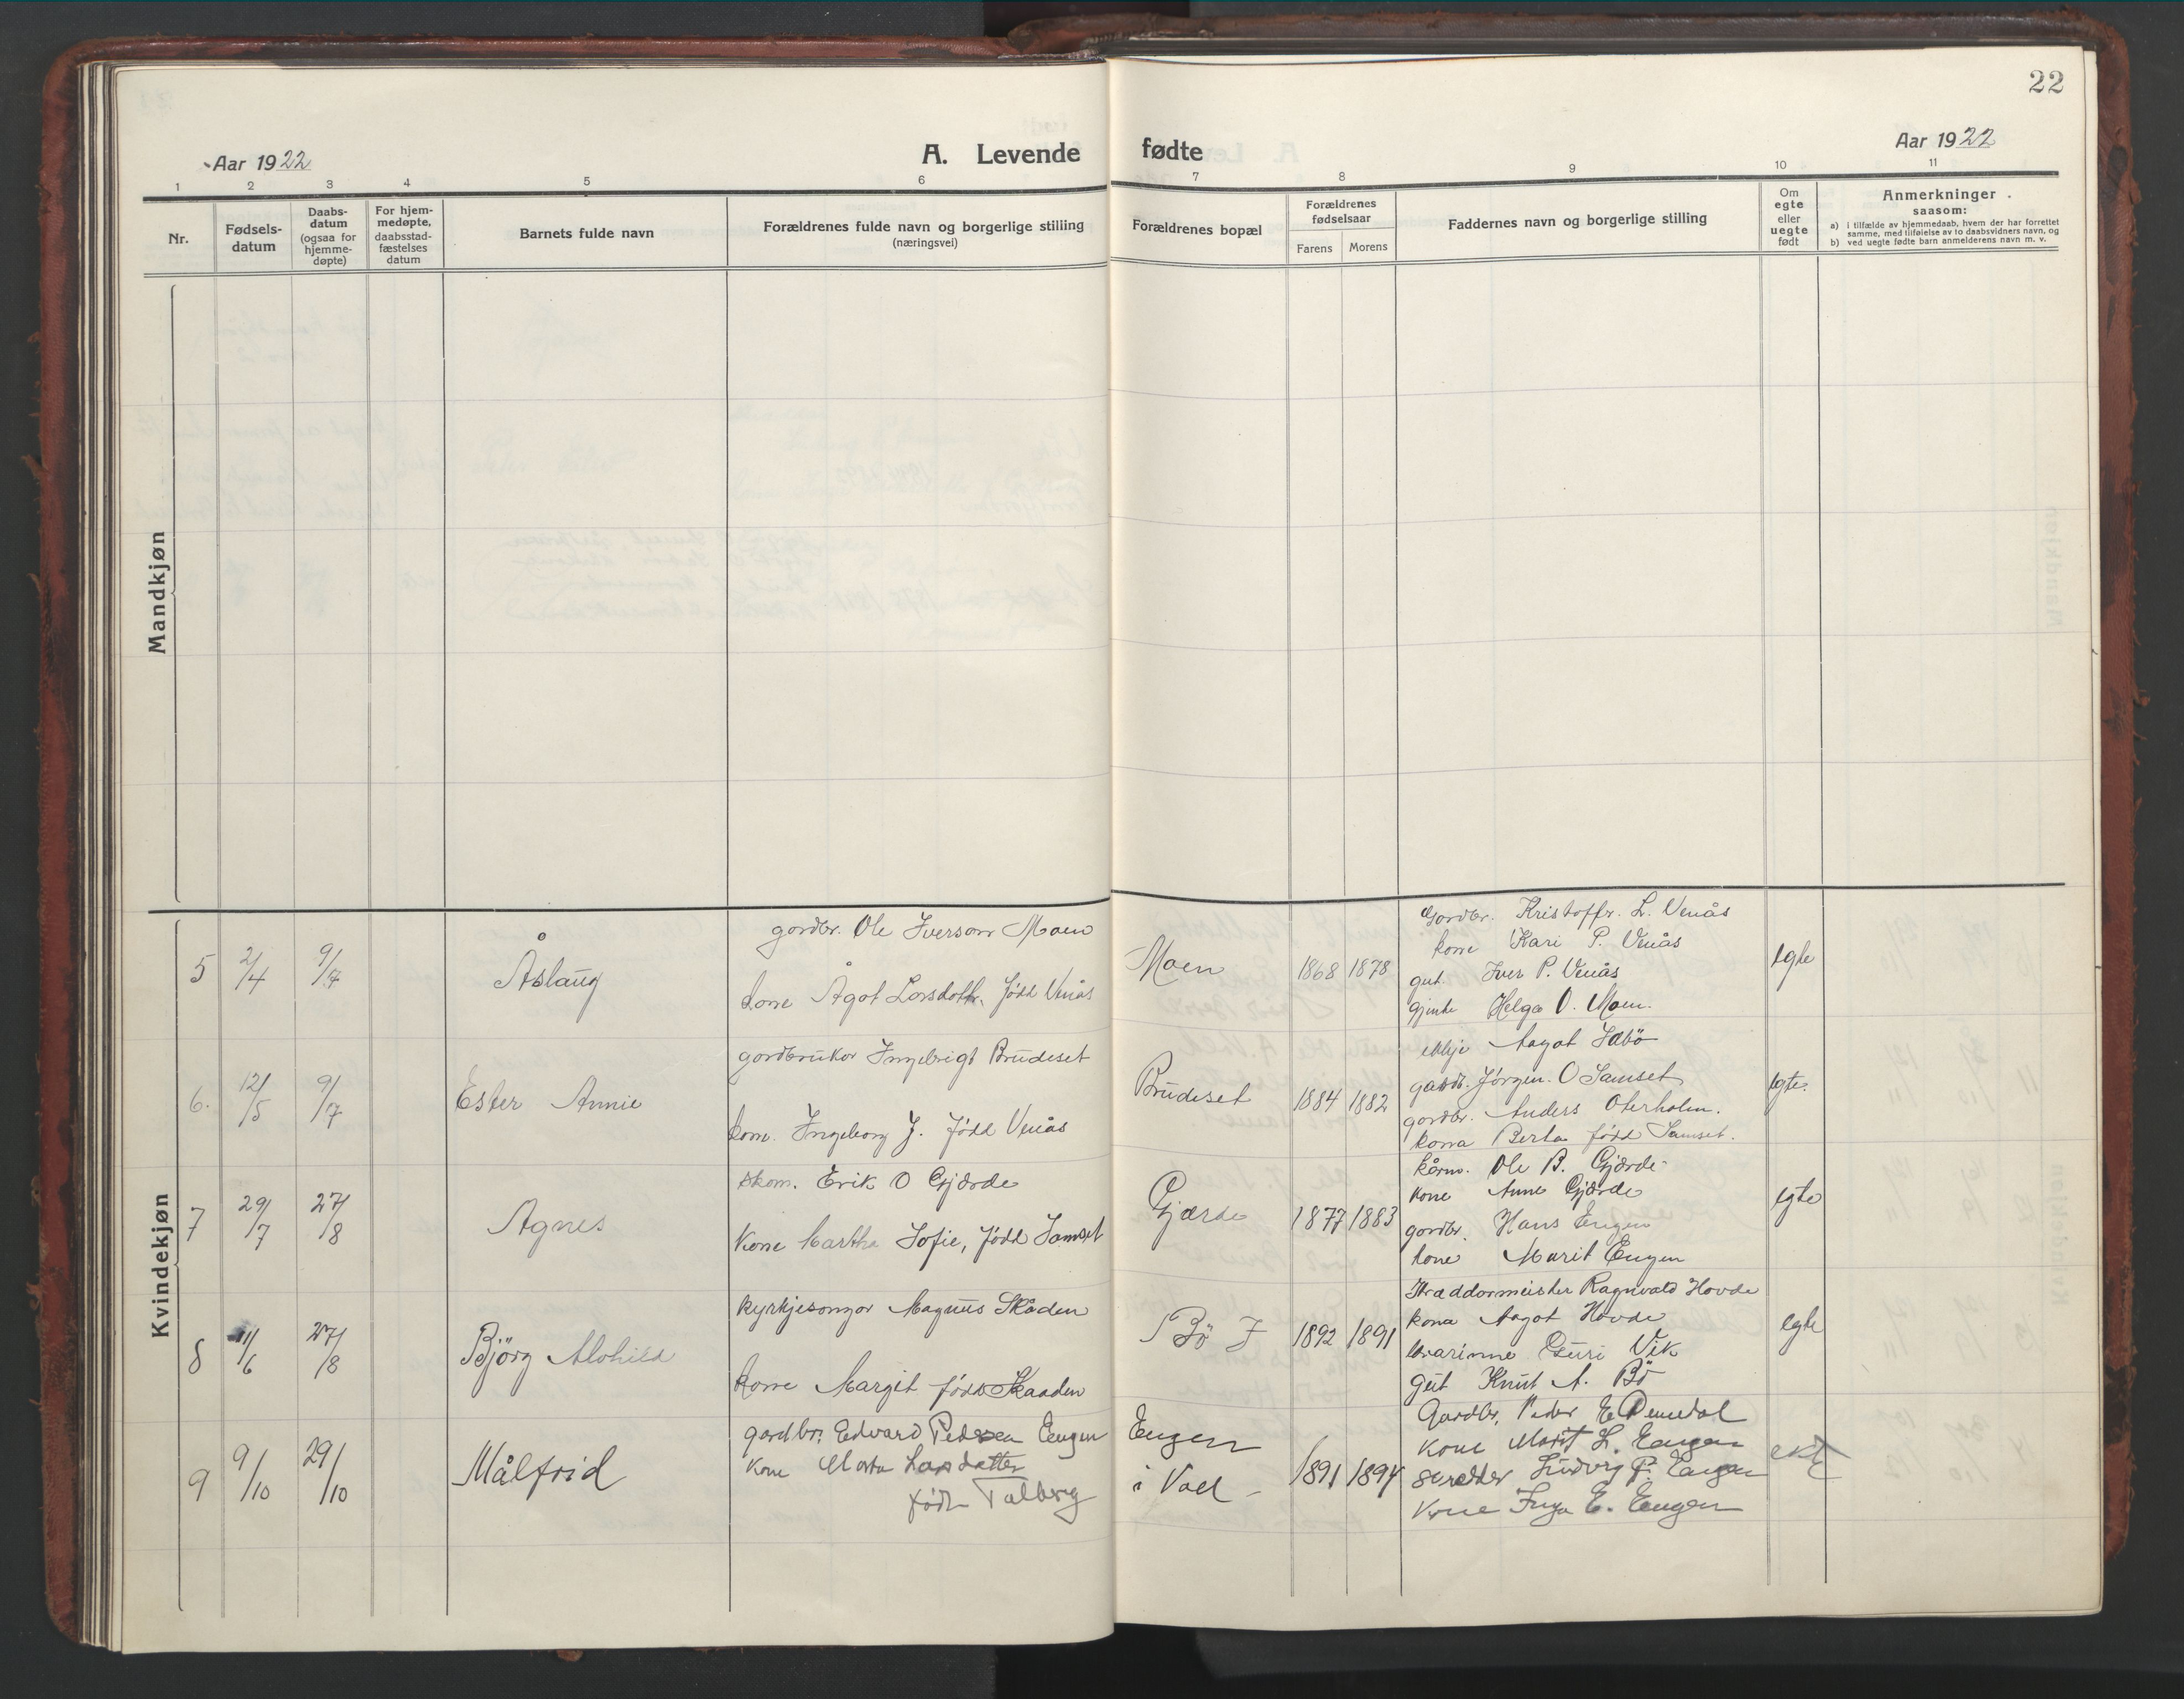 22
Aar 1922
A. Levende fødte
Aar 1922
1 2 3 4 5 6 7 8 9 10 11
Nr.
Fødsels-
datum
Daabs-
datum
(ogsaa for
hjemme-
døpte)
For hjem-
medøpte,
daabsstad-
fæstelses
datum
Barnets fulde navn
Forældrenes fulde navn og borgerlige stilling
(næringsvei)
Forældrenes bopæl
Forældrenes
fødselsaar
Farens Morens
Faddernes navn og borgerlige stilling
Om
egte
eller
uegte
født
Anmerkninger
saasom:
a) i tilfælde av hjemmedaab, hvem der har forrettet
samme, med tilføielse av to daabsvidners navn, og
b) ved uegte fødte barn anmelderens navn m. v.
Mandkjøn
Kvindekjøn
5 2/4 9/7 Åslaug
gardbr. Ole Iverson Moen
kone Ågot Larsdottr. född Venås
Moen 1868 1878
Gardbr. Kristoffr. L. Venås
kone Kari P. Venås
gut. Iver P. Venås
gjente Helga O. Moen.
egte
6. 12/5 9/7 Ester Annie
gardbrukar Ingebrigt Brudeset
kone. Ingeborg J. född Venås
Brudeset 1884 1882
ekkje Aagot Sæbö
gardb. Jörgen. O Samset
gardbr. Anders Oterholm.
kona Berta född Samset.
egte.
7 29/7 27/8 Agnes
skom. Erik O Gjærde
Kone Martha Sofie, född Samset
Gjærde 1877 1883
kårm. Ole B. Gjærde
kone Anne Gjærde
gardbr. Hans Engen
kone Marit Engen
egte
8 11/6 27/8 Björg Alvhild
kyrkjesongar Magnus Skåden
kone Margit född Skaaden
Bö I 1892 1891
Skræddarmeister Ragnvald Hovde
kona Aagot Hovde
lærarinne Guri Vik
gut Knut A. Bö
egte
9 9/10 29/10 Målfrid
gardbr. Edvard Pedersen Engen
kone Marta Larsdatter
född Talberg
Engen
i Voll 1891 1894
Gardbr. Peder E
Kone Marit L. Engen
skredder Ludvig P. Engen
Kone Inga E. Engen
ekte